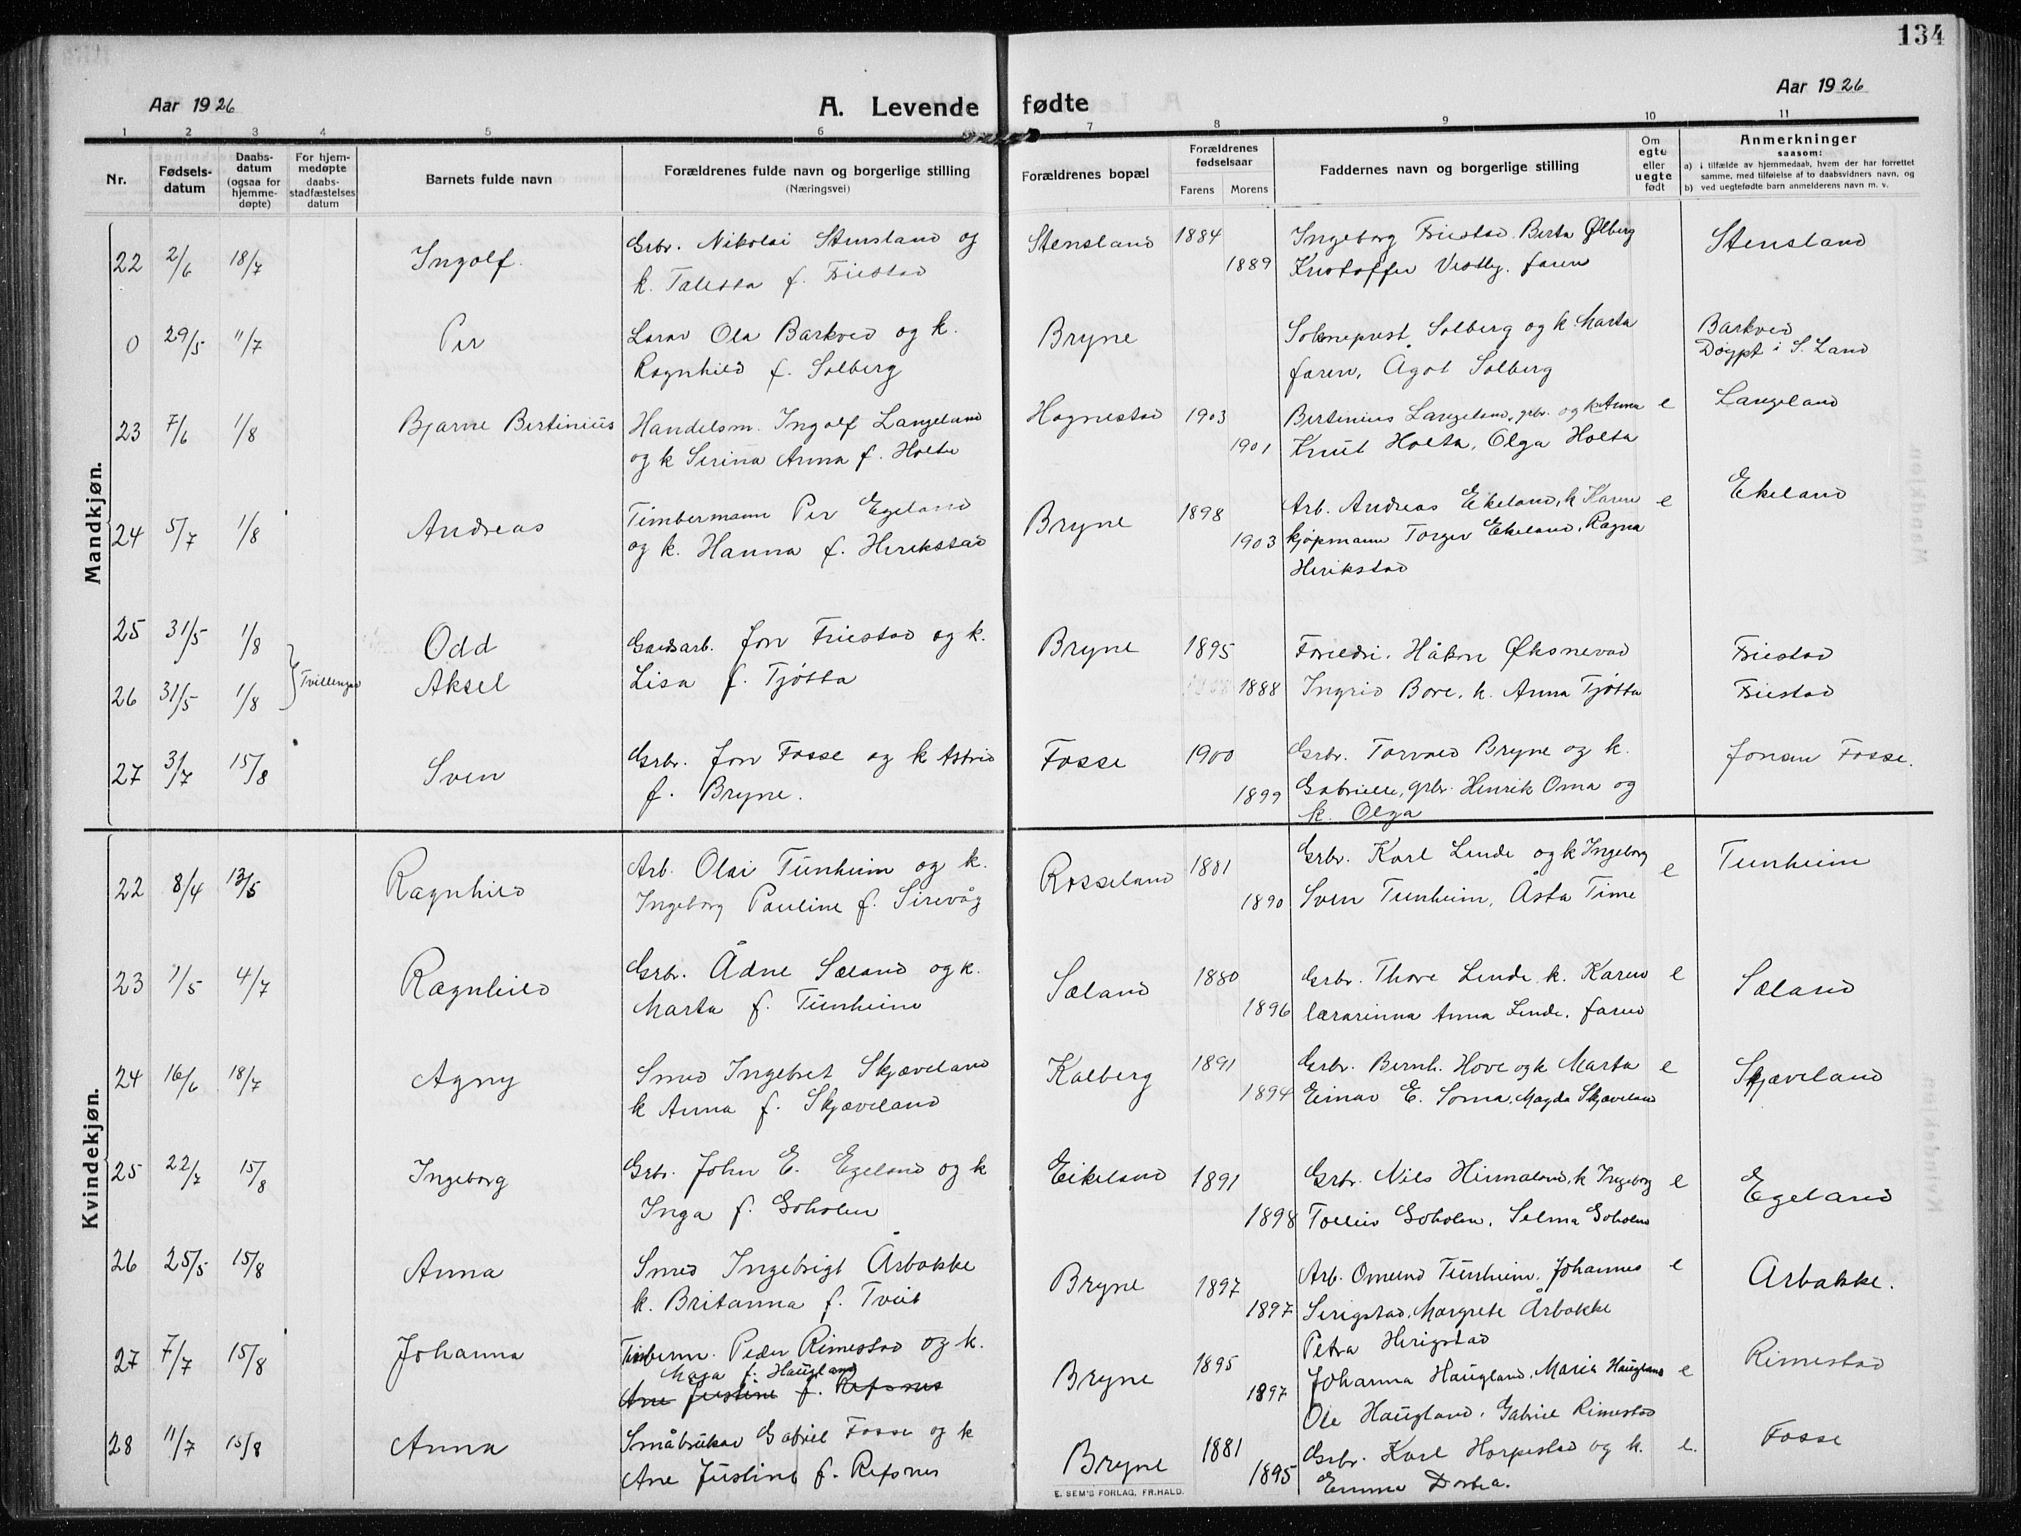 134
Aar 1926
A. Levende fødte
Aar 1926
1 2 3 4 5 6 7 8 9 10 11
Nr.
Fødsels-
datum
Daabs-
datum
(ogsaa for
hjemme-
døpte)
For hjem-
medøpte
daabs-
stadfæstelses
datum
Barnets fulde navn
Forældrenes fulde navn og borgerlige stilling
(Næringsvei)
Forældrenes bopæl
Forældrenes
fødselsaar
Farens Morens
Faddernes navn og borgerlige stilling
Om
egte
eller
uegte
født
Anmerkninger
saasom:
a) i tilfælde av hjemmedaab, hvem der har forrettet
samme, med tilføielse af to daabsvidners navn, og
b) ved uegtefødte barn anmelderens navn m. v.
Mandkjøn.
22 2/6 18/7 Ingolf. Grbr. Nikolai Stensland og Stensland 1884 Ingeborg Friestad Berta Ølberg Stensland
k. Taletta f. Friestad 1889 Kristoffer Vestly. faren
0 29/5 11/7 Per Lærar Ola Barkved og k. Bryne Soknepvest Solberg og k Marta Barkved
Ragnhild f. Solberg faren, Ågot Solberg Døypt i S. Land
23 7/6 1/8 Bjarne Bertinius Handelsm. Ingolf Langeland Hognestad 1903 Bertinius Langeland, grbr. og k Anna e Langeland
og k Serina Anna f. Holta 1901 Knut Holta, Olga Holta
24 5/7 1/8 Andreas Timbermann Per Egeland Bryne 1898 Arb. Andreas Ekeland, k Karen e Ekeland
og k. Hanna f. Herikstad 1903 kjøpmann Torger Ekeland, Ragna
Herikstad
25 31/5 1/8 Odd Gardsarb. Jon Friestad og k. Bryne 1895 Håkon Øksnevad Friestad
Tvillingar
26 31/5 1/8 Aksel Lisa f. Tjøtta 1888 Ingrid Bore, k. Anna Tjøtta Friestad
27 31/7 15/8 Sven Grbr. Jon Fosse og k Astrid Fosse 1900 Grbr. Torvald Bryne og k. Jonan Fosse.
f. Bryne. 1899 Gabrielle, grbr. Henrik Oma og
k. Olga
Kvindekjøn.
22 8/4 13/5 Ragnhild Arb. Olai Tunheim og k. Rosseland 1881 Grbr. Karl Lende og k Ingeborg e Tunheim
Ingeborg Pauline f. Sirevåg 1890 Sven Tunheim, Åsta Time
23 1/5 4/7 Ragnhild Grbr. Ådne Sæland og k. Sæland 1880 Grbr. Thore Lende k. Karen e Sæland
Marta f. Tunheim 1896 lærarinna Anna Lende, faren
24 16/6 18/7 Agny Smed Ingebret Skjæveland Kalberg 1891 Grbr. Bernh. Hove og k Marta e Skjæveland
k Anna f. Skjæveland 1894 Einar E. Soma, Magda Skjæveland
25 22/7 15/8 Ingeborg Grbr. John E. Egeland og k Eikeland 1891 Grbr. Nils Hinnaland, k Ingeborg e Egeland
Inga f. Goholen 1898 Tolleiv Goholen, Selma Goholen
26 25/5 15/8 Anna Smed Ingebrigt Årbakke Bryne 1897 Arb. Omund Tunheim, Johannes e Årbakke.
k. Britanna f. Tveit 1897 Serigstad, Margrete Årbakke
Petra Herigstad
27 7/7 15/8 Johanna Timberm. Peder Rimestad og k. Bryne 1895 Johanna Haugland, Maria Haugland e Rimestad
Maga f. Haugland
Ane Justine f. Refsnes 1897 Ole Haugland, Gabriel Rimestad
28 11/7 15/8 Anna Småbrukar Gabriel Fosse og k Bryne 1881 Grbr. Karl Horpestad og k. e. Fosse
Ane Justine f. Refsnes 1895 Emma Dortea.
E. SEM'S FORLAG, FR.HALD.